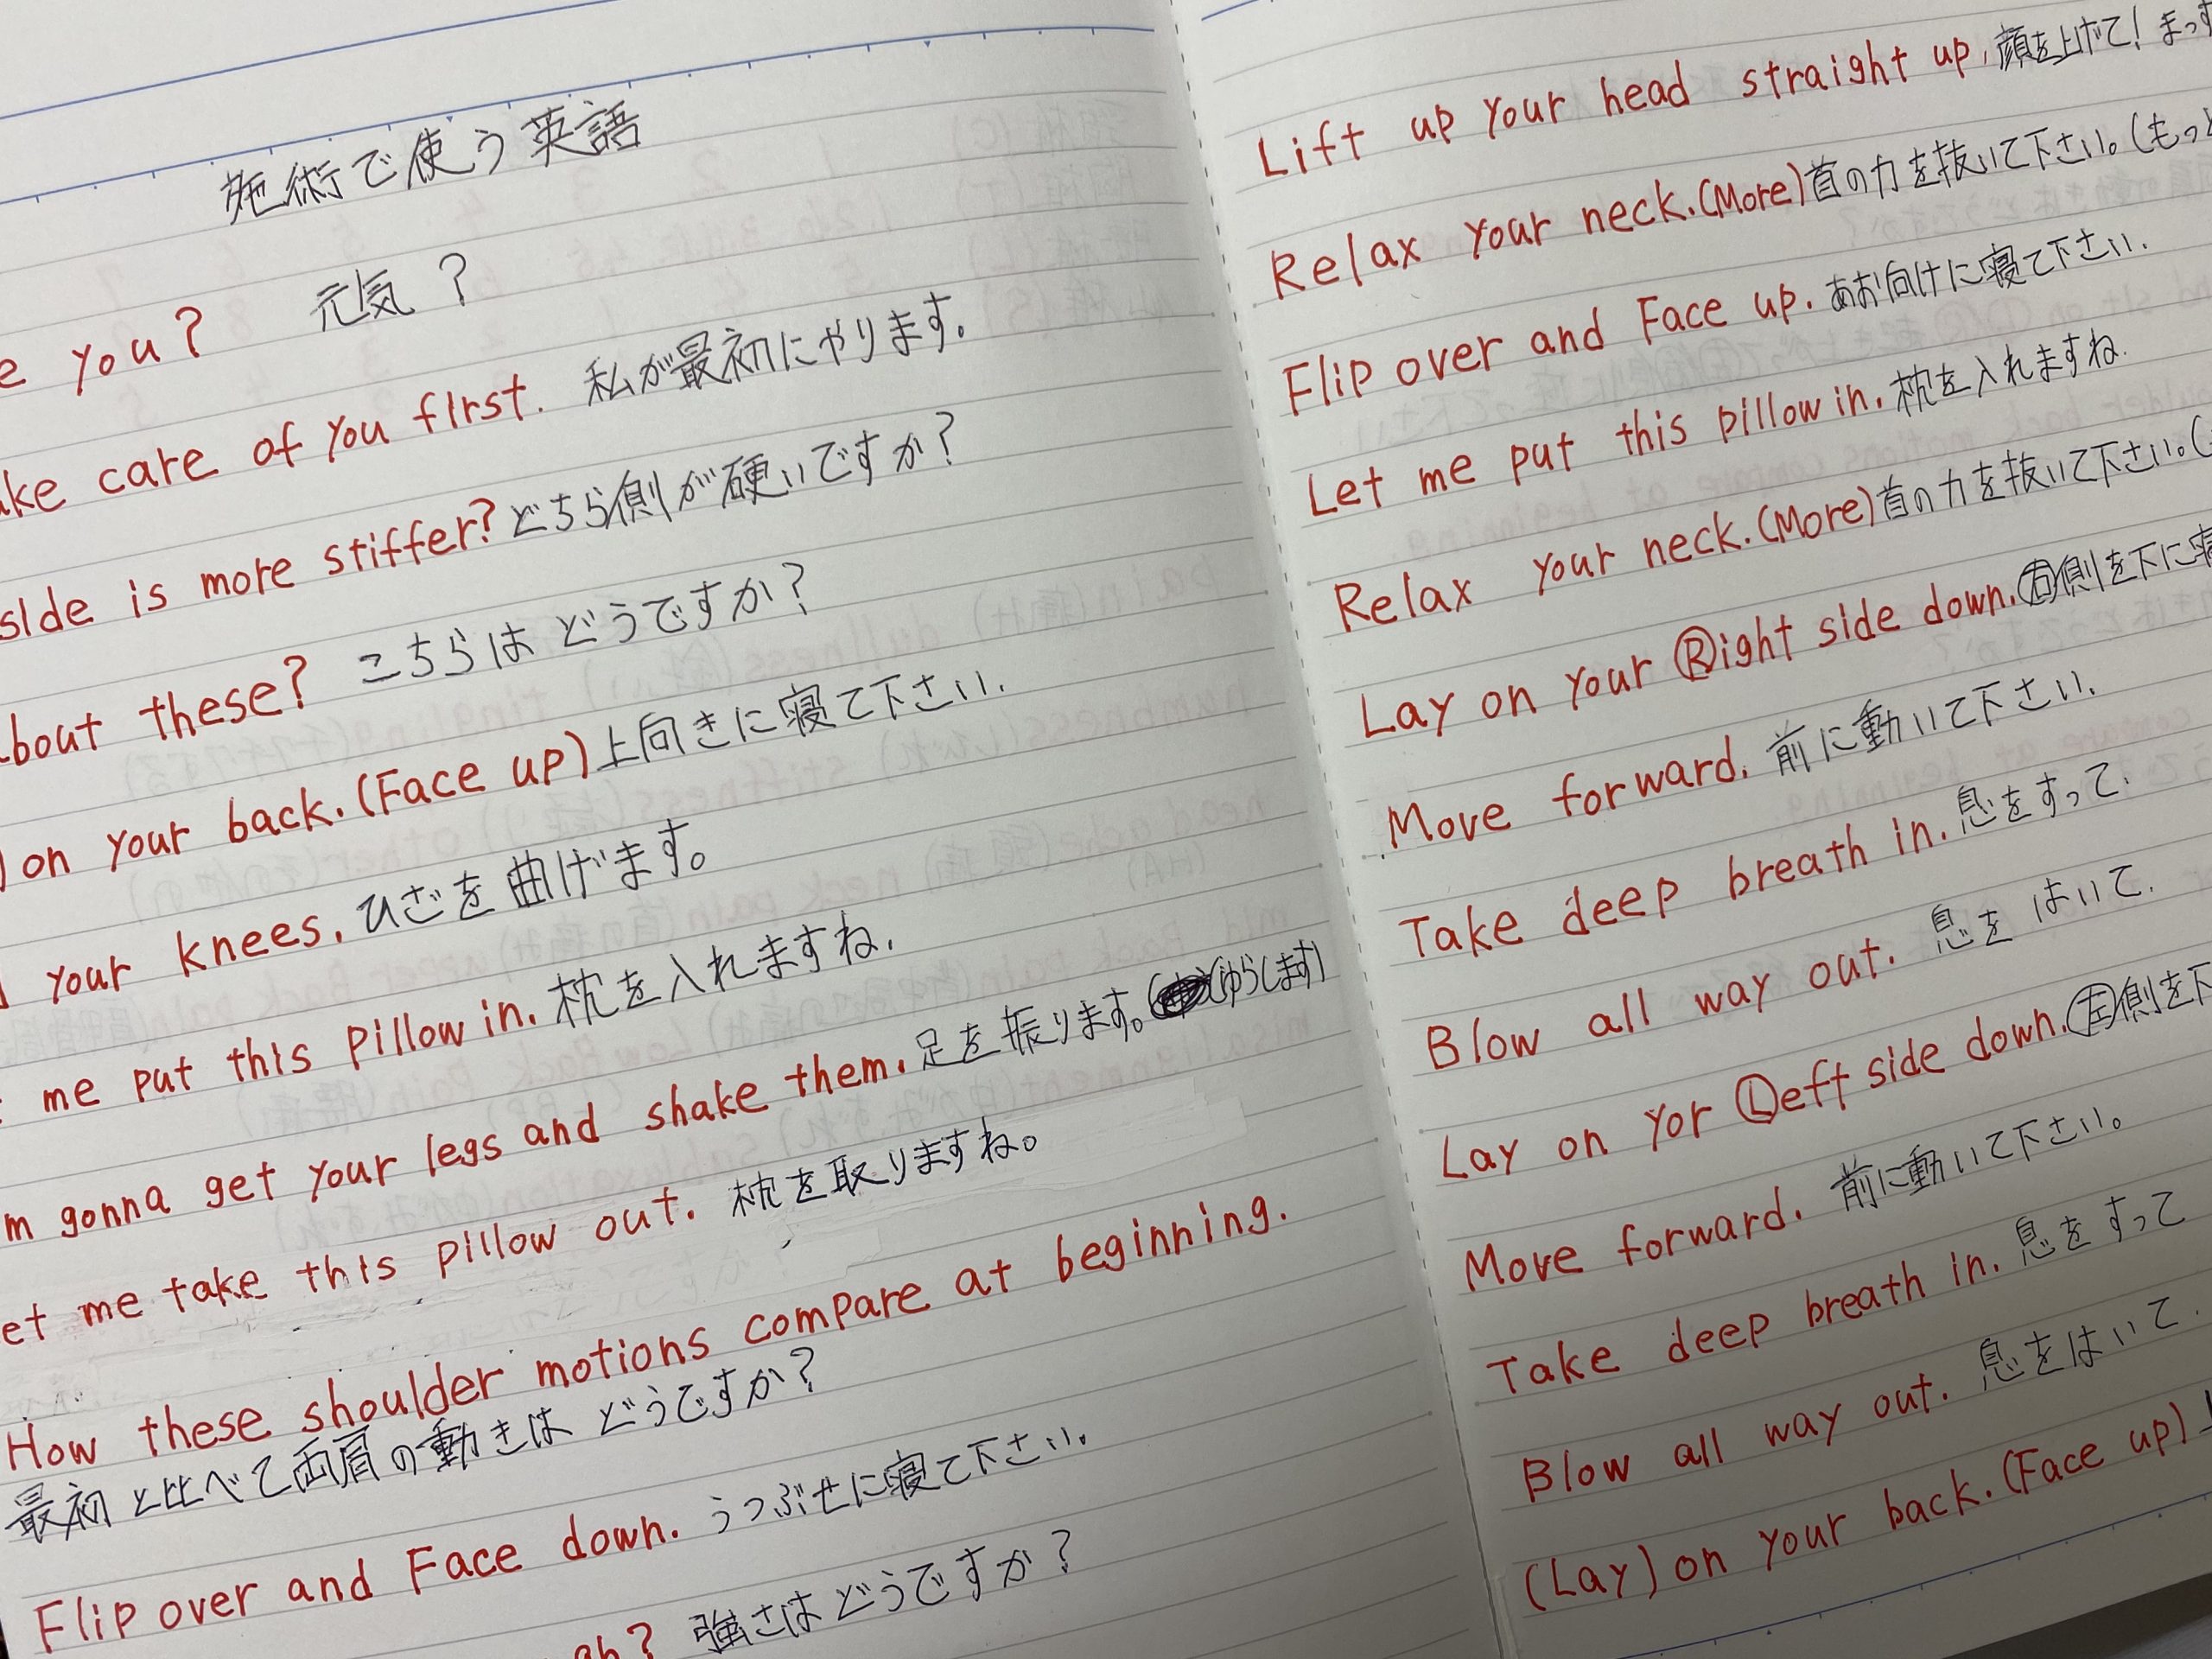 施術で使う英語
you? 元気?
care of you first. 私が最初にやります。
side is more stiffer? どちら側が硬いですか?
these? こちらは どうですか?
on your back. (Face up) 上向きに寝て下さい.
your knees. ひざを曲げます。
me put this pillow in. 枕を入れますね.
gonna get your legs and shake them. 足を振ります。(ゆらします)
me take this pillow out. 枕を取りますね。
How these shoulder motions compare at beginning.
最初と比べて両肩の動きは どうですか?
Flip over and Face down. うつぶせに寝て下さい.
強さはどうですか?
Lift up your head straight up. 顔を上げて!
Relax your neck. (More) 首の力を抜いて下さい。(もっと
Flip over and Face up. あお向けに寝て下さい.
Let me put this pillow in. 枕を入れますね.
Relax your neck. (More) 首の力を抜いて下さい。
Lay on your Right side down. 右側を下に
Move forward. 前に動いて下さい.
Take deep breath in. 息をすって.
Blow all way out. 息を はいて.
Lay on yor Left side down. 左側を
Move forward. 前に動いて下さい。
Take deep breath in. 息をすって
Blow all way out. 息をはいて.
(Lay) on your back. (Face up)